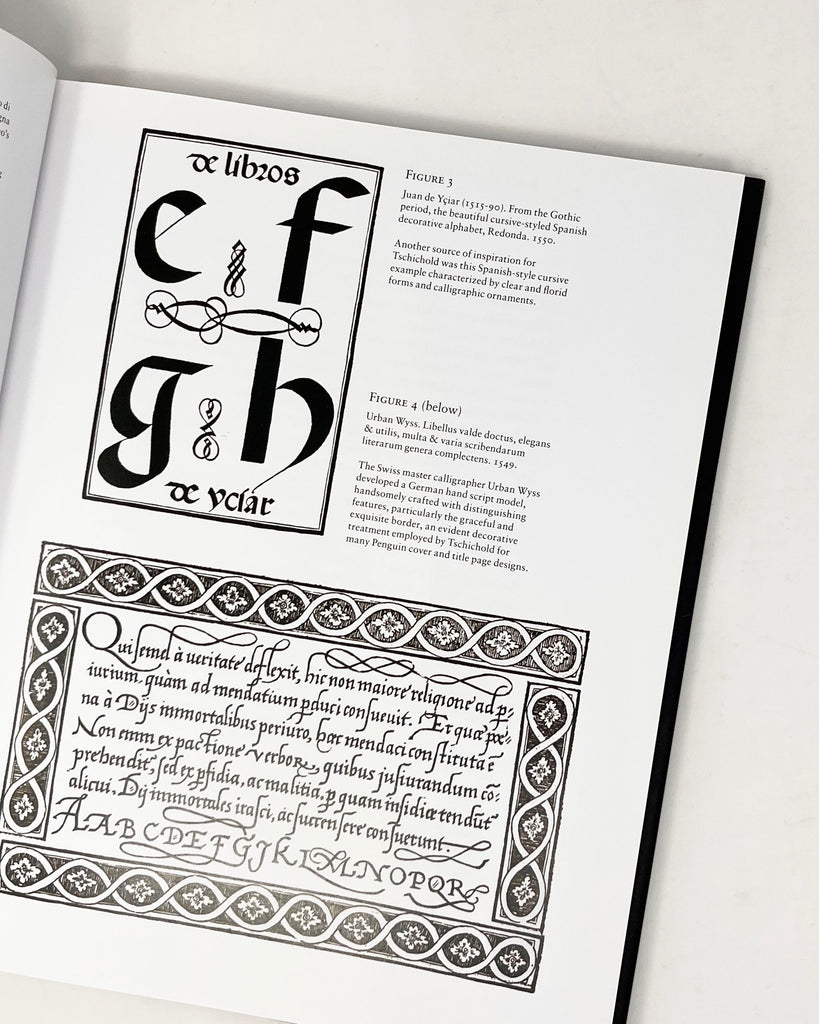 o di
gna
o's
g
de libros
e f
g h
de yciar
FIGURE 3
Juan de Yçiar (1515-90). From the Gothic
period, the beautiful cursive-styled Spanish
decorative alphabet, Redonda. 1550.
Another source of inspiration for
Tschichold was this Spanish-style cursive
example characterized by clear and florid
forms and calligraphic ornaments.
FIGURE 4 (below)
Urban Wyss. Libellus valde doctus, elegans
& utilis, multa & varia scribendarum
literarum genera complectens. 1549.
The Swiss master calligrapher Urban Wyss
developed a German hand script model,
handsomely crafted with distinguishing
features, particularly the graceful and
exquisite border, an evident decorative
treatment employed by Tschichold for
many Penguin cover and title page designs.
Qui semel à ueritate deflexit, hic non maiore religione ad p-
iurium, quàm ad mendatium pduci consueuit. Et quæ
na à Dijs immortalibus periuro, hæc mendaci constituta ẽ
Non enim ex pactione verborꝝ, quibus jusiurandum cō-
prehendit, sed ex pfidia, ac malitia, p quam insidiæ tendūt
alicui, Dij immortales irasci, ac succensere consueuerunt.
AAB CDEFGJKLMNOPQR